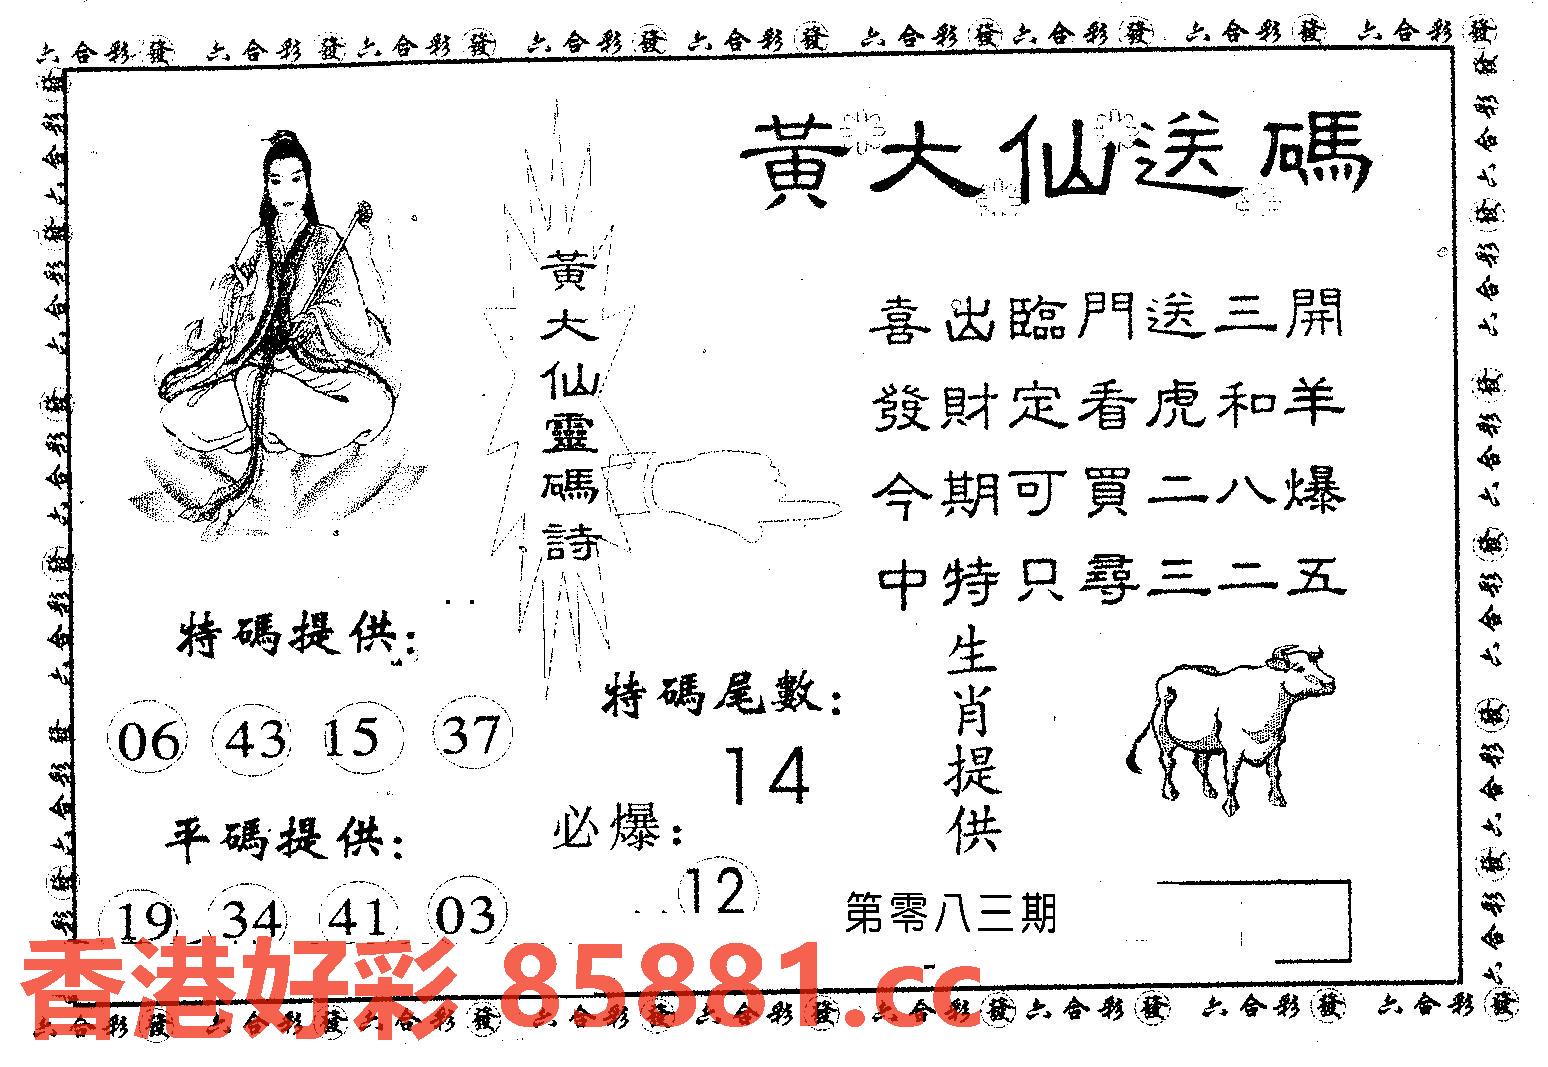 六合彩發 六合彩發 六合彩發 六合彩發 六合彩發 六合彩發 六合彩發 六合彩發 六合彩發
黃大仙送碼
黃大仙靈碼詩
喜出臨門送三開
發財定看虎和羊
今期可買二八爆
中特只尋三二五
特碼提供:
06 43 15 37
平碼提供:
19 34 41 03
特碼尾數:
14
必爆:
12
生肖提供
第零八三期
香港好彩 85881.cc
六合彩發 六合彩發 六合彩發 六合彩發 六合彩發 六合彩發 六合彩發 六合彩發 六合彩發